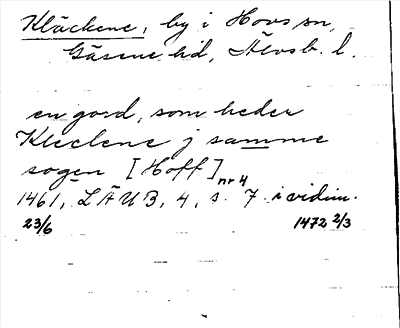 Kläckene, by i Hovs sn,
Gäsene hd, Älvsb. l.
en gord, som heder
Kleckene j samme
sogen [Hoff] nr 4
1461, LÄUB, 4, s. 7 i vidim.
23/6 1472 2/3